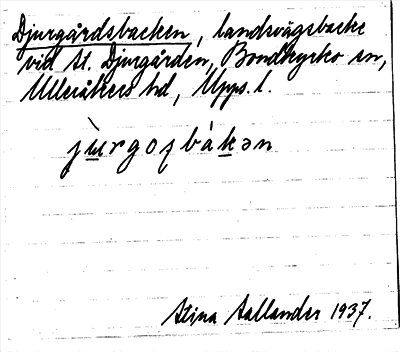 Djurgårdsbacken, landsvägsbacke
vid St. Djurgården, Bondkyrko sn,
Ulleråkers hd, Upps. l.
jùrgoʂbákən
Stina Aallander 1937.